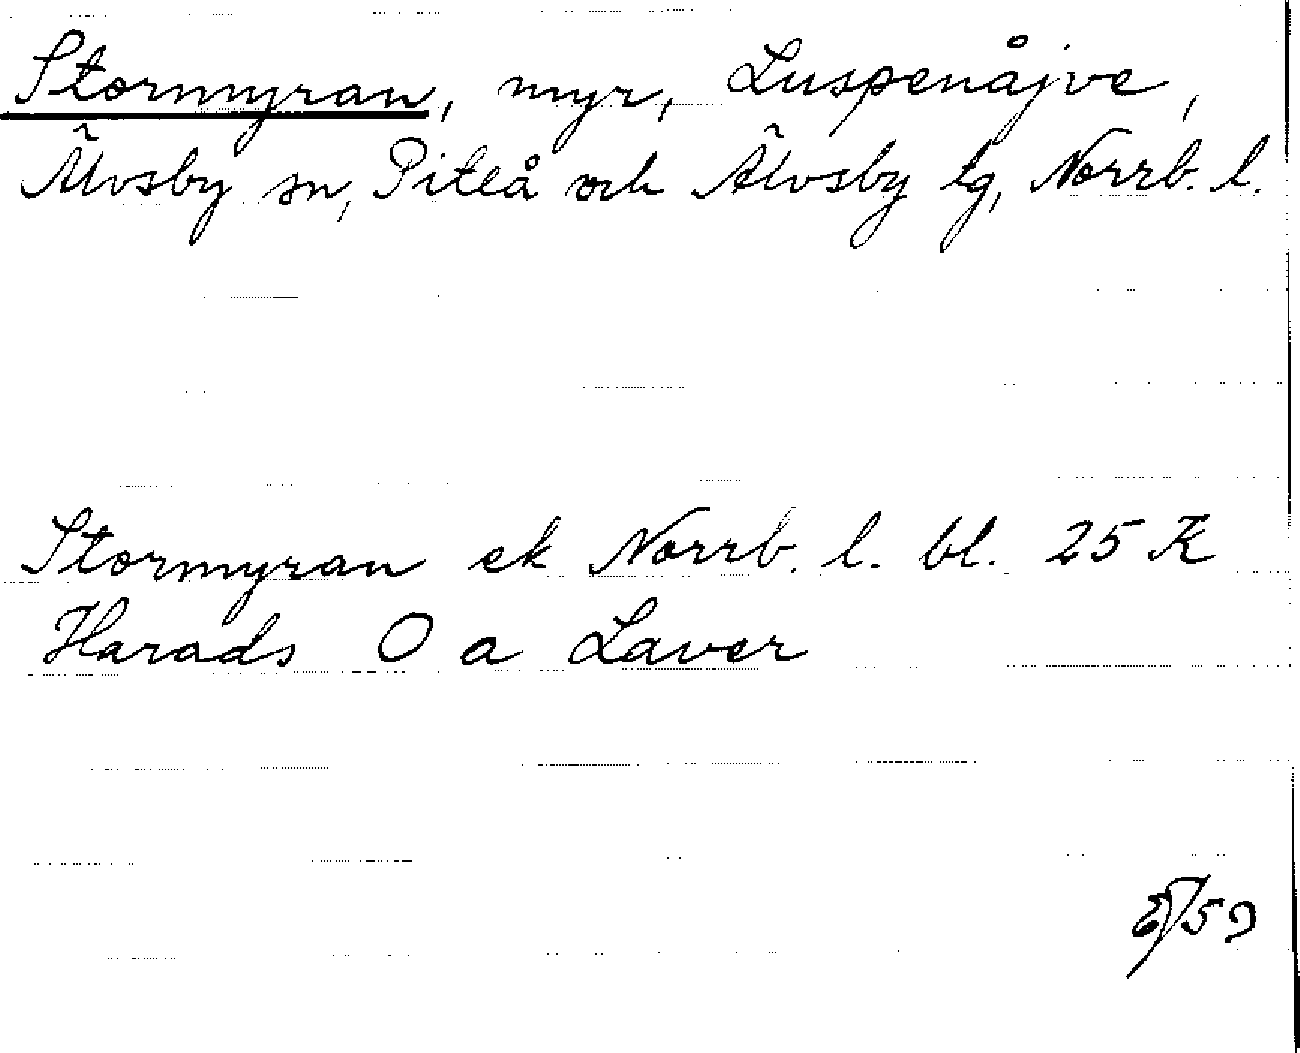 Stormyran, myr, Luspenåjve,
Älvsby sn, Piteå och Älvsby tg, Norrb. l.
Stormyran ek Norrb. l. bl. 25 K
Harads O a Laver